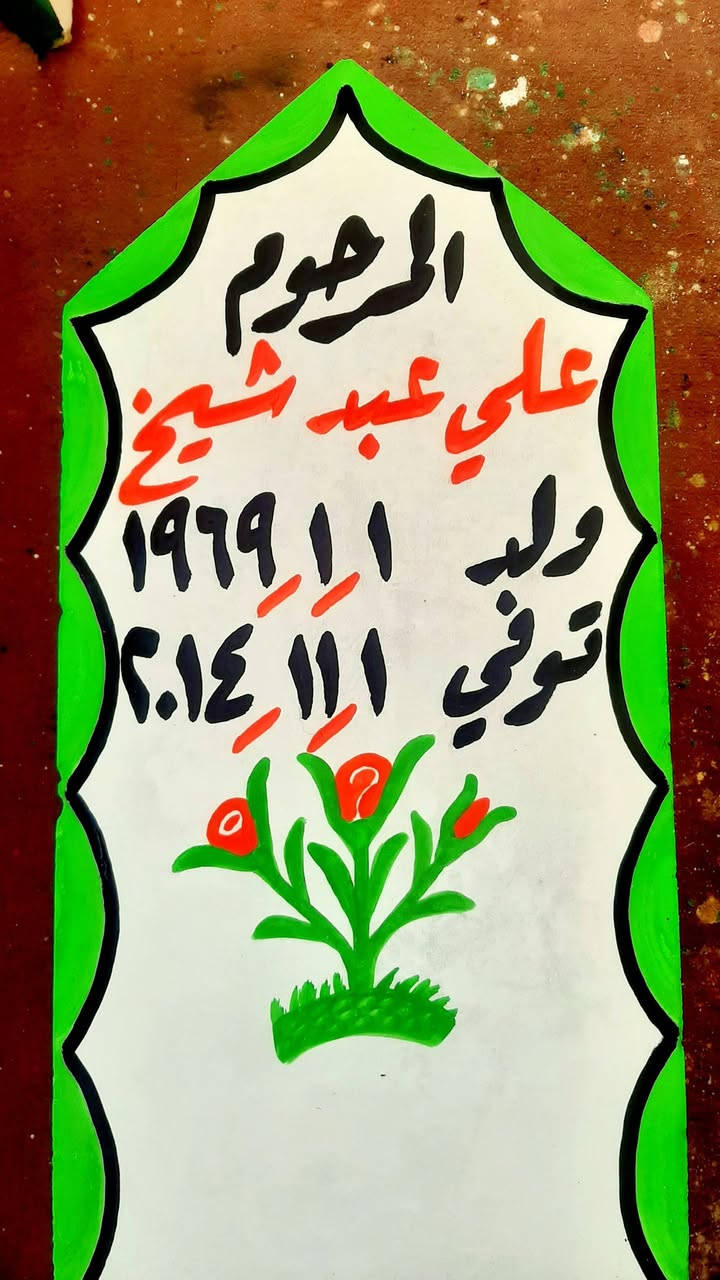 المرحوم
علي عبد شيخ
ولد ١/١/١٩٦٩
توفي ١/١١/٢٠١٤